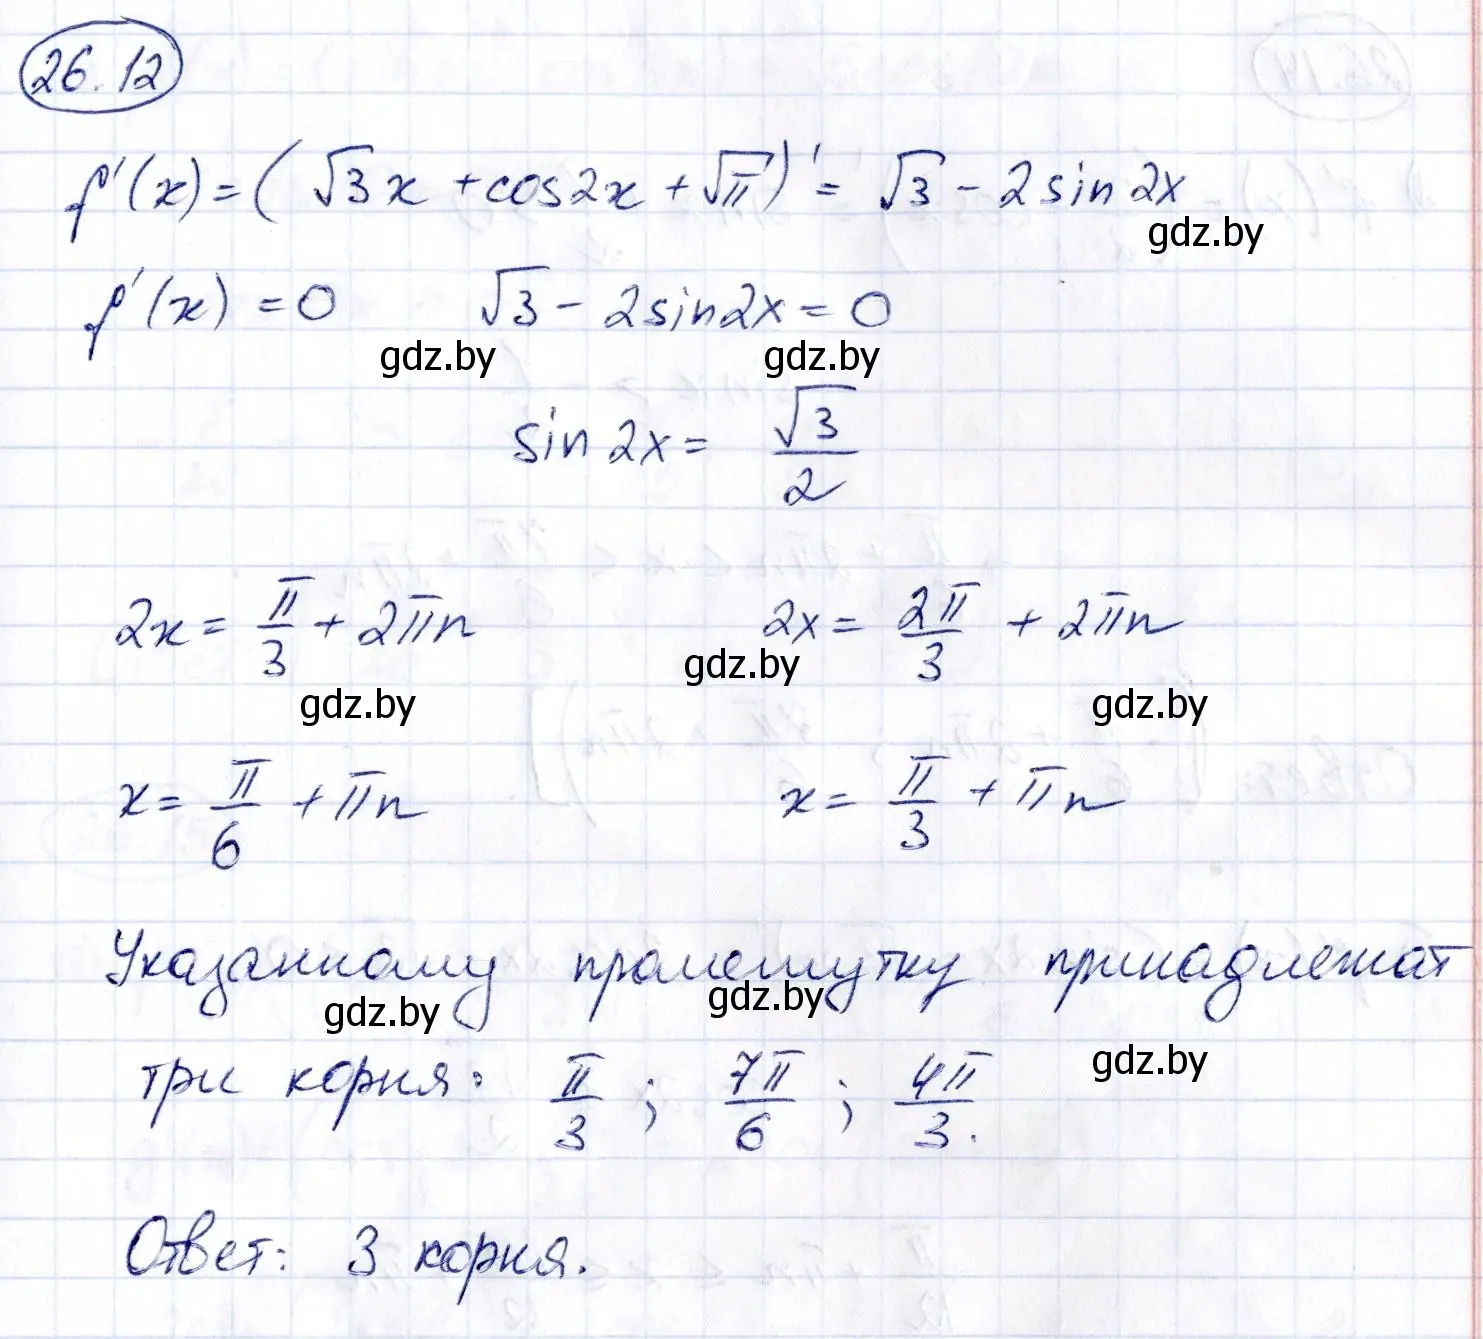 26.12
f'(x) = (√3x + cos2x + √π)' = √3 - 2sin2x
gdz.by
f'(x) = 0 √3 - 2sin2x = 0
gdz.by gdz.by
sin2x = √3/2
2x = π/3 + 2πn 2x = 2π/3 + 2πn
gdz.by
gdz.by gdz.by
x = π/6 + πn x = π/3 + πn
Указанному промежутку принадлежат
gdz.by gdz.by
три корня: π/3; 7π/6; 4π/3.
gdz.by
Ответ: 3 корня.